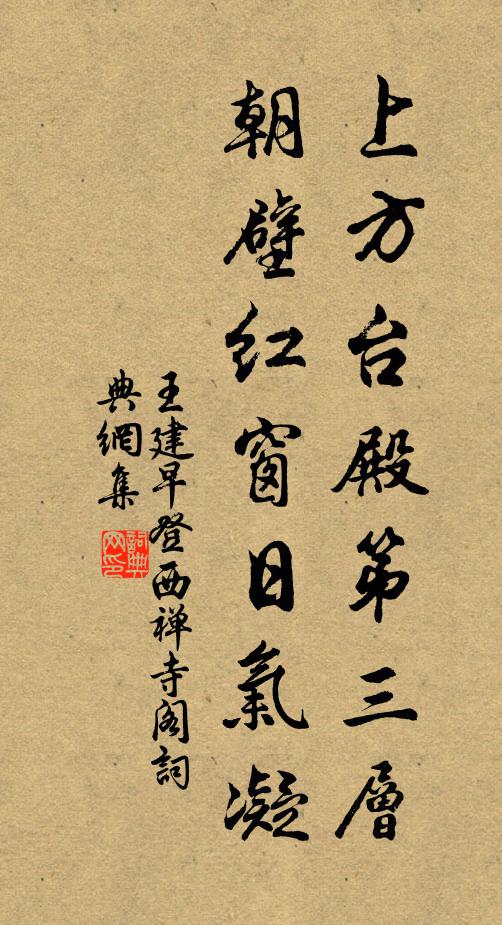 上方台殿第三層
朝壁红窗日氣凝
王建早登西禅寺阁詞
典網集
詞典网印